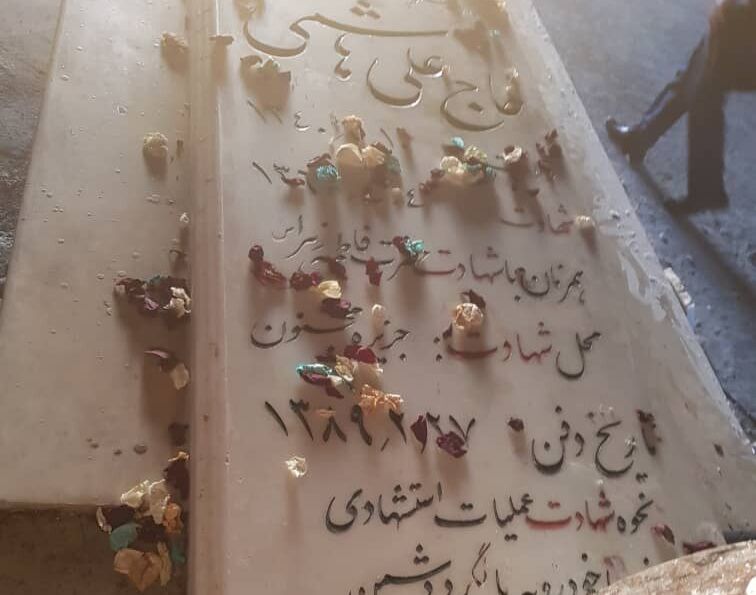 هاشمی
حاج علی
۱۳۴۰
شهادت
همزمان با شهادت حضرت فاطمه زهرا س
محل شهادت: جزیره مجنون
تاریخ دفن ۱۳۸۹٫۲٫۲۷
نحوه شهادت عملیات استشهادی